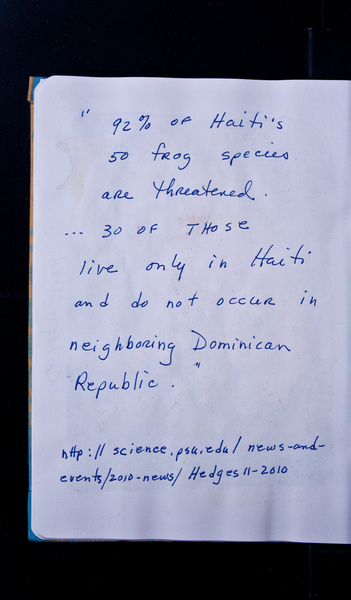 " 92% OF Haiti's
50 frog species
are threatened.
... 30 OF THOSE
live only in Haiti
and do not occur in
neighboring Dominican
Republic. "
http://science.psu.edu/news-and-
events/2010-news/Hedges11-2010